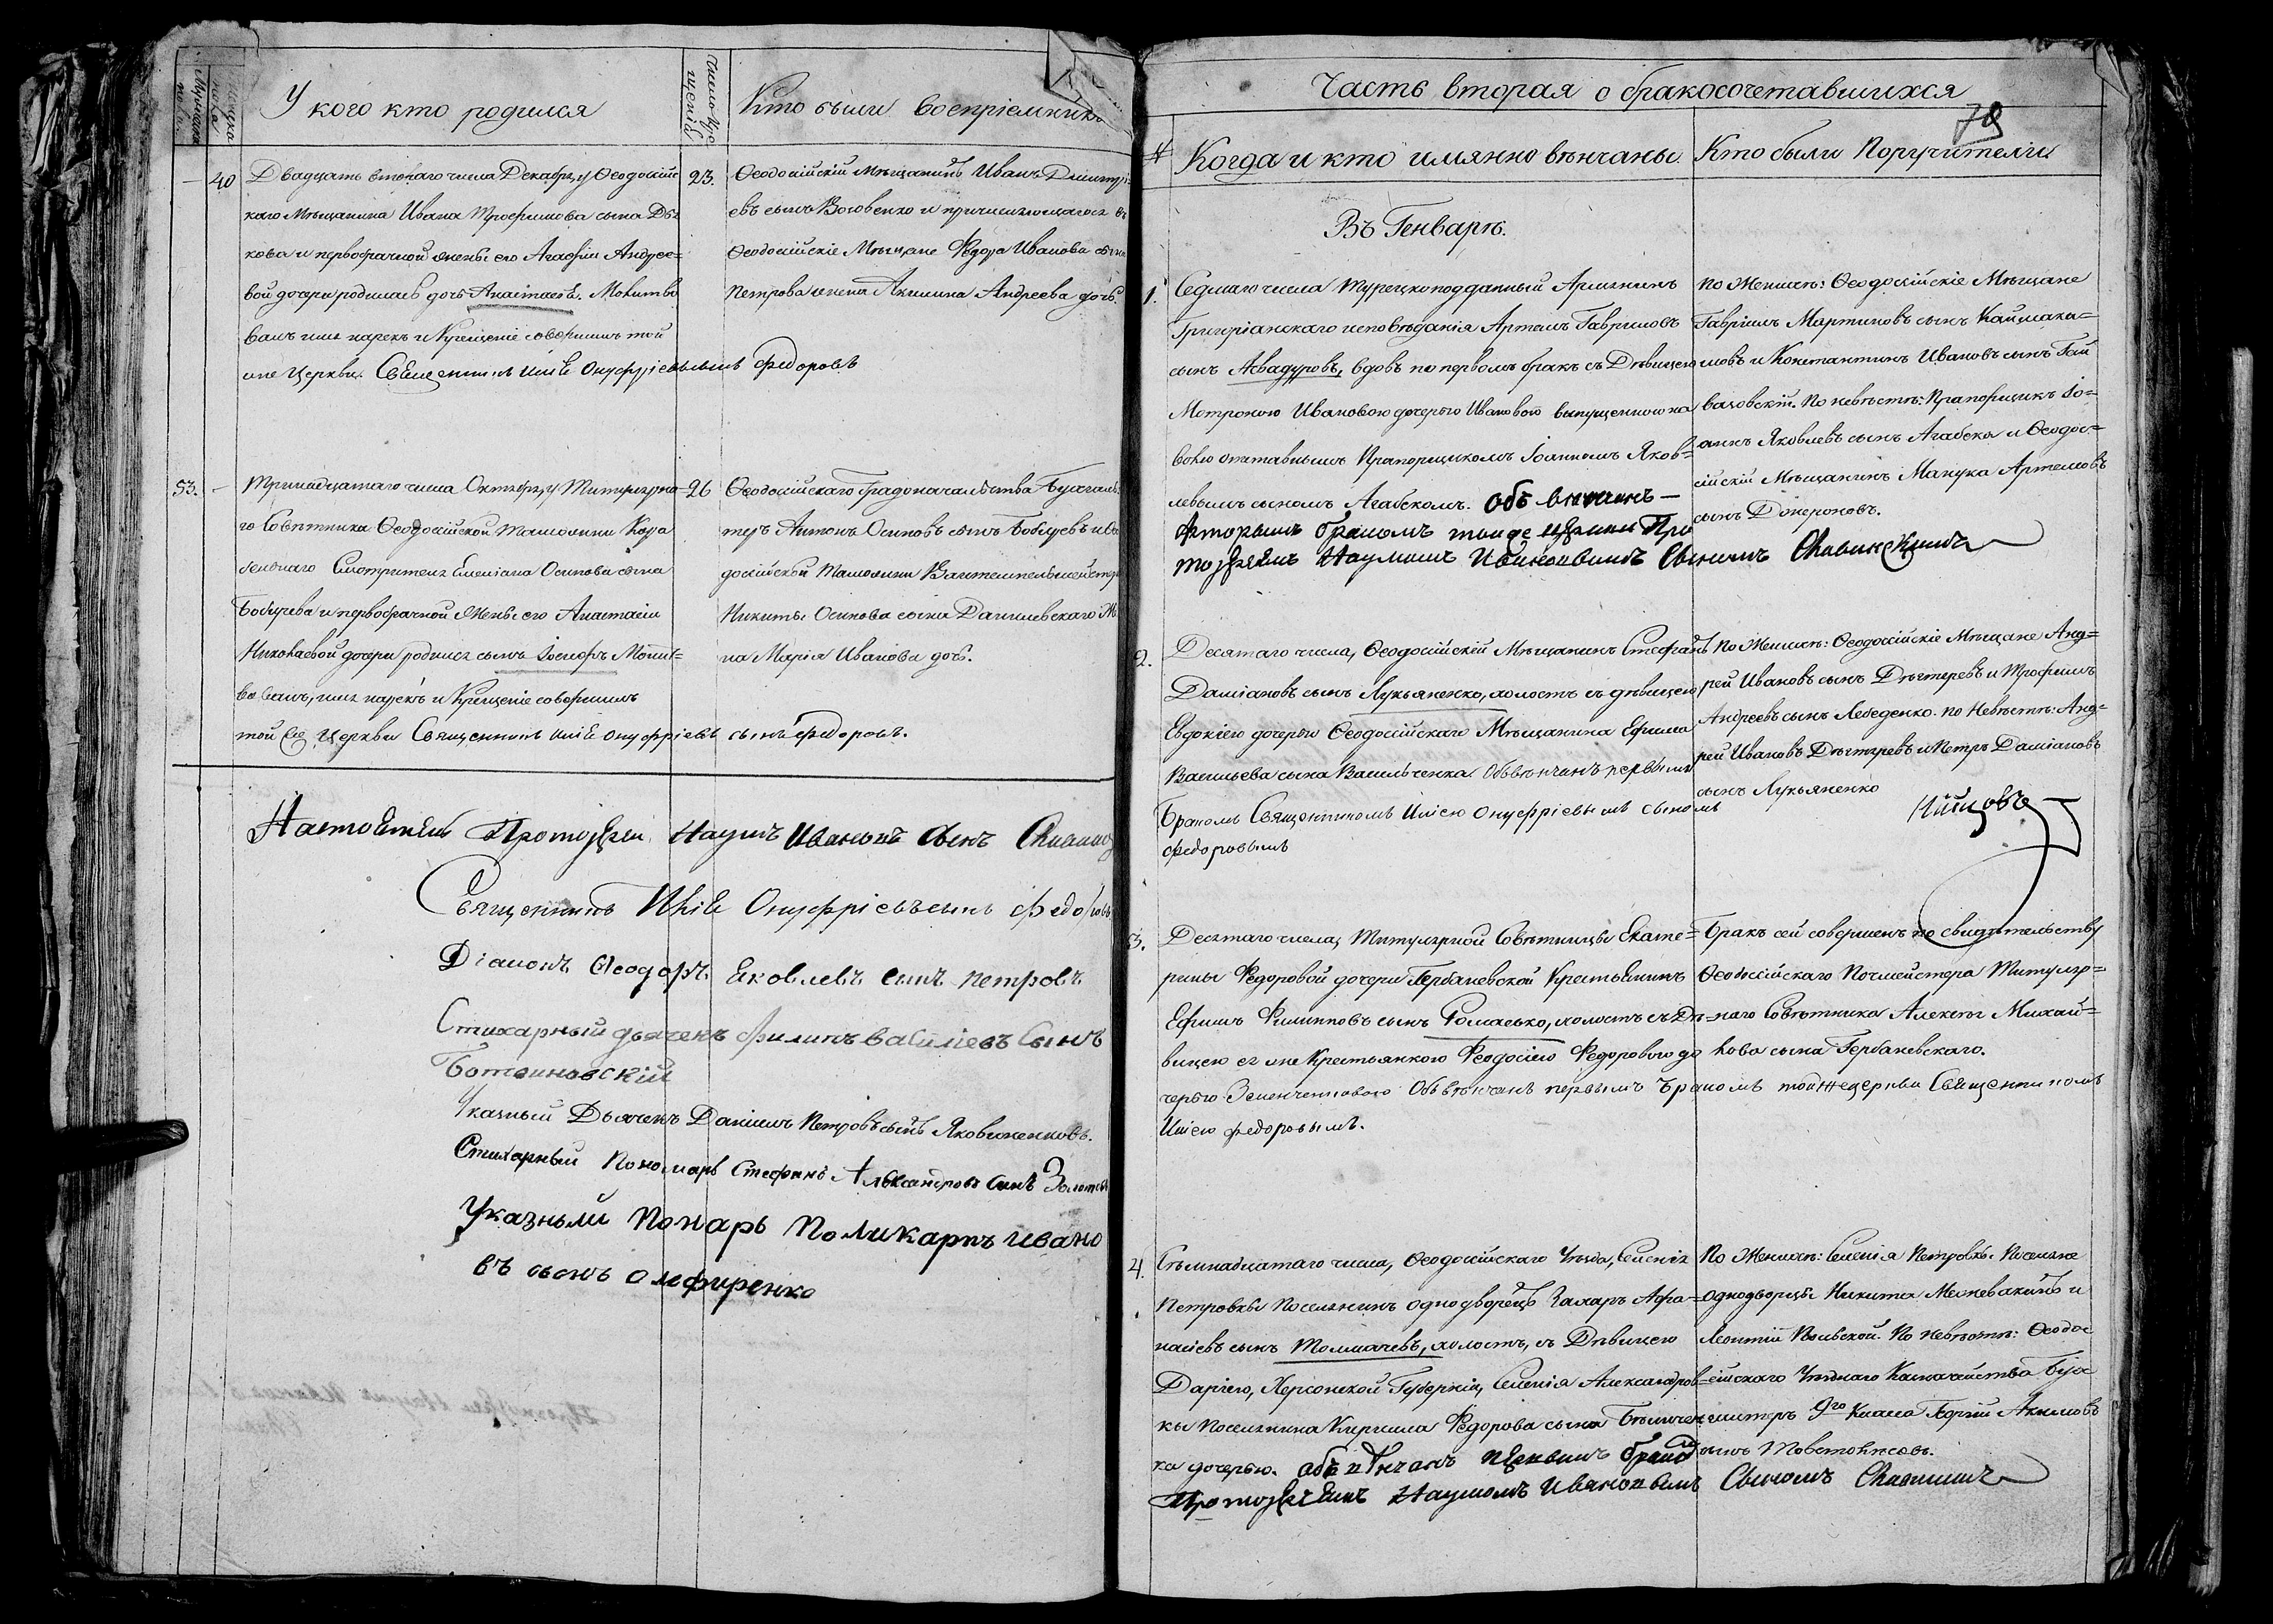 У кого кто родился
Кто были воспріемники
40 Двадцать втораго числа Декабря, у Ѳеодосійс
каго Мѣщанина Ивана Трофимова сына Дья
кова и первобрачной жены его Агафіи Андрее=
вой дочери родилась дочь Анастасія. Молитво
валъ имя нарекъ и Крещеніе совершилъ той
же Церкви. Священникъ Илія Онуфріевъ сынъ Федоровъ
23. Ѳеодосійскій Мѣщанинъ Иванъ Дмитрі=
евъ сынъ и причисляющагося въ
Ѳеодосійскіе Мѣщане Ѳедора Иванова сына
Петрова жена Акилина Андреева дочь.
53. Тринадцатаго числа Октября, у Титулярна=
го Совѣтника Ѳеодосійской Таможни Кара
беннаго Смотрителя Емеліана Осипова сына
Бобцева и первобрачной Жены его Анастасіи
Николаевой дочери родился сынъ Іосифъ Молит=
вовалъ, имя нарекъ и Крещеніе совершилъ
той же Церкви Священникъ Илія Онуфріевъ сынъ Федоровъ.
26 Ѳеодосійскаго Градоначальства Бухгал
теръ Антонъ Осиповъ сынъ Бобцевъ и Ѳео
досійской Таможни
Никиты Осипова сына Данилевскаго Же
на Марія Иванова дочь.
Настоятель Протоіерей Наумъ Ивановъ Сынъ
Священникъ Илія Онуфріевъ сынъ Федоровъ
Діаконъ Ѳеодоръ Яковлевъ сынъ Петровъ
Стихарный дьячекъ Филипъ Василіевъ Сынъ
Ботвиновскій
Указный Дьячекъ Даніилъ Петровъ сынъ Яковиненковъ.
Стихарный Пономарь Стефанъ Александровъ сынъ
Указный Понарь Поликарпъ Ивано
въ сынъ Олефиренко
Часть вторая о бракосочетавшихся
79
Когда и кто имянно вѣнчаны
Кто были Поручители
Въ Генварѣ.
1. Седмаго числа Турецкоподданный Армянинъ
Григоріанскаго исповѣданія Артемъ Гавриловъ
сынъ Асвадуровъ, вдовъ по первомъ бракѣ съ Дѣвицею
Матроною Ивановою дочерью Ивановою выпущенною на
волю отставнымъ Прапорщикомъ Іоанномъ Яков=
левымъ сыномъ Агабекомъ. Обвѣнчанъ
вторымъ бракомъ тоиже церкви Про
тоіереемъ Наумомъ Ивановымъ Сыномъ
По Женихѣ: Ѳеодосійскіе Мѣщане
Гавріилъ Мартиновъ сынъ Каймака=
мовъ и Константинъ Ивановъ сынъ Гай
вазовскій. По невѣстѣ: Прапорщикъ Іо=
аннъ Яковлевъ сынъ Агабекъ и Ѳеодос=
ійскій Мѣщанинъ Манука Артемовъ
сынъ
2. Десятаго числа, Ѳеодосійскій Мѣщанинъ Стефанъ
Даміановъ сынъ Лукьяненко, холостъ съ дѣвицею
Евдокіею дочерью Ѳеодосійскаго Мѣщанина Ефима
Васильева сына Васильченка. Обвѣнчанъ первымъ
Бракомъ Священникомъ Иліею Онуфріевымъ сыномъ
Федоровымъ
По Женихѣ: Ѳеодосійскіе Мѣщане Анд=
рей Ивановъ сынъ Дѣгтеревъ и Трофимъ
Андреевъ сынъ Лебеденко. По Невѣстѣ: Анд=
рей Ивановъ Дѣгтяревъ и Петръ Даміановъ
сынъ Лукьяненко
3. Десятаго числа, Титулярной Совѣтницы Екате=
рины Федоровой дочери Гербаневской Крестьянинъ
Ефимъ Филиповъ сынъ Ромасько, холостъ съ Дѣ=
вицею ея же Крестьянкою Ѳеодосіею Федоровою до
черью Обвѣнчанъ первымъ Бракомъ тойже церкви Священникомъ
Иліею Федоровымъ.
Бракъ сей совершенъ по свидѣтельству
Ѳеодосійскаго Почмейстера Титуляр=
наго Совѣтника Алексѣя Михай=
лова сына Гербаневскаго.
4. Седмнадцатаго числа, Ѳеодосійскаго Уѣзда, Селенія
Петровки Поселянинъ однодворецъ Захаръ Афа=
насіевъ сынъ Толмачевъ, холостъ, съ Дѣвицею
Даріею, Херсонской Губерніи, Селенія Александров=
ки Поселянина Кирилла Федорова сына
дочерью. Обвѣнчанъ первымъ бракомъ
Протоіереемъ Наумомъ Ивановымъ Сыномъ
По Женихѣ: Селенія Петровки Поселяне
однодворцы Никита и
Леонтій По Невѣстѣ: Ѳеодос
ейскаго Уѣзднаго Казначейства Бухг
алтеръ 9го Класса Георгій Акимовъ
сынъ